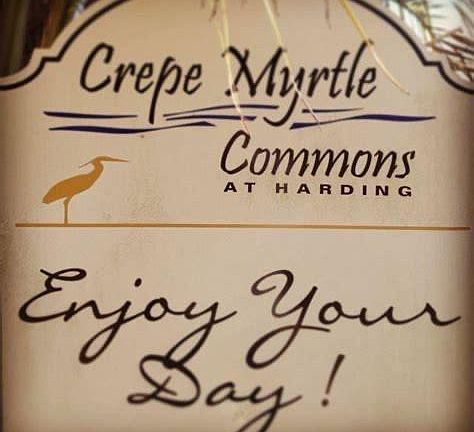 Crepe Myrtle
Commons
AT HARDING
Enjoy Your
Day!